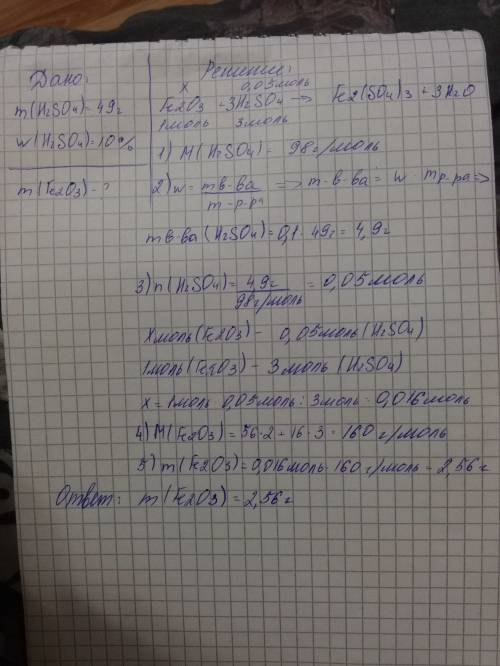 Дано:
m(H2SO4)=49г
w(H2SO4)=10%
m(Fe2O3)-?
Решение:
x 0,05моль
Fe2O3 + 3H2SO4 → Fe2(SO4)3 + 3H2O
1моль 3моль
1) M(H2SO4) = 98г/моль
2) w = mв-ва/m р-ра => m в-ва = w · mр-ра =>
mв-ва (H2SO4) = 0,1 · 49г = 4,9г
3) n(H2SO4) = 4,9г/98г/моль = 0,05моль
xмоль(Fe2O3) - 0,05моль(H2SO4)
1моль(Fe2O3) - 3моль (H2SO4)
x = 1моль · 0,05моль : 3моль = 0,016моль
4) M(Fe2O3) = 56·2 + 16·3 = 160г/моль
5) m(Fe2O3) = 0,016моль · 160г/моль = 2,56г
Ответ: m(Fe2O3) = 2,56г